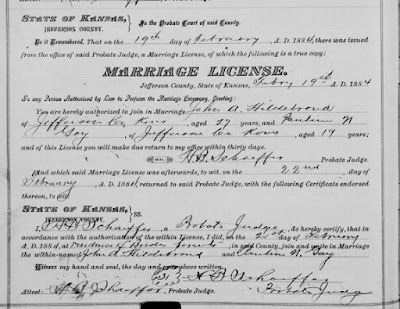 STATE OF KANSAS,
JEFFERSON COUNTY.
In the Probate Court of said County.
Be it Remembered, That on the 19th day of February A. D. 1884, there was issued
from the office of said Probate Judge, a Marriage License, of which the following is a true copy:
MARRIAGE LICENSE.
Jefferson County, State of Kansas, Febry 19th A. D. 1884
To any Person Authorized by Law to Perform the Marriage Ceremony, Greeting:
You are hereby authorized to join in Marriage John A. Hildebrand
of Jefferson Co Kans aged 27 years and Pauline N
Gay of Jefferson Co Kans aged 19 years;
and of this License you will make due return to my office within thirty days.
H H Schaeffer Probate Judge.
And which said Marriage License was afterwards, to wit, on the 22nd day of
February A. D. 1884, returned to said Probate Judge, with the following Certificate endorsed
thereon, to wit:
STATE OF KANSAS,
JEFFERSON COUNTY. ss.
I, H H Schaeffer a Probate Judge do hereby certify, that in
accordance with the authorization of the within License, I did, on the day of February
A. D. 1884, at residence of Brides parents in said County, join and unite in Marriage
the within-named John A Hildebrand and Pauline N. Gay
Witness my hand and seal, the day and year above written.
H H Schaeffer
Attest: H H Schaeffer, Probate Judge. Probate Judge